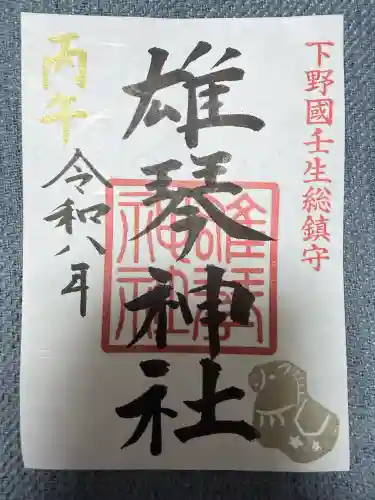 下野國壬生総鎮守
雄琴神社
雄琴神社
丙午
令和八年